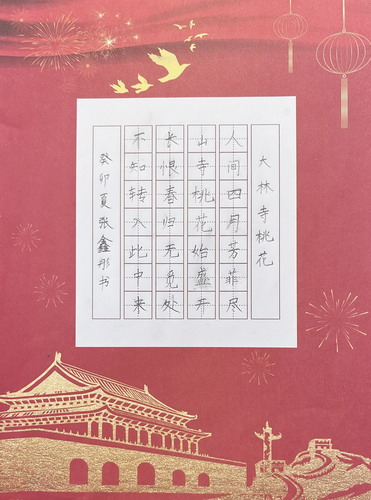 大林寺桃花
人间四月芳菲尽
山寺桃花始盛开
长恨春归无觅处
不知转入此中来
癸卯夏张鑫彤书